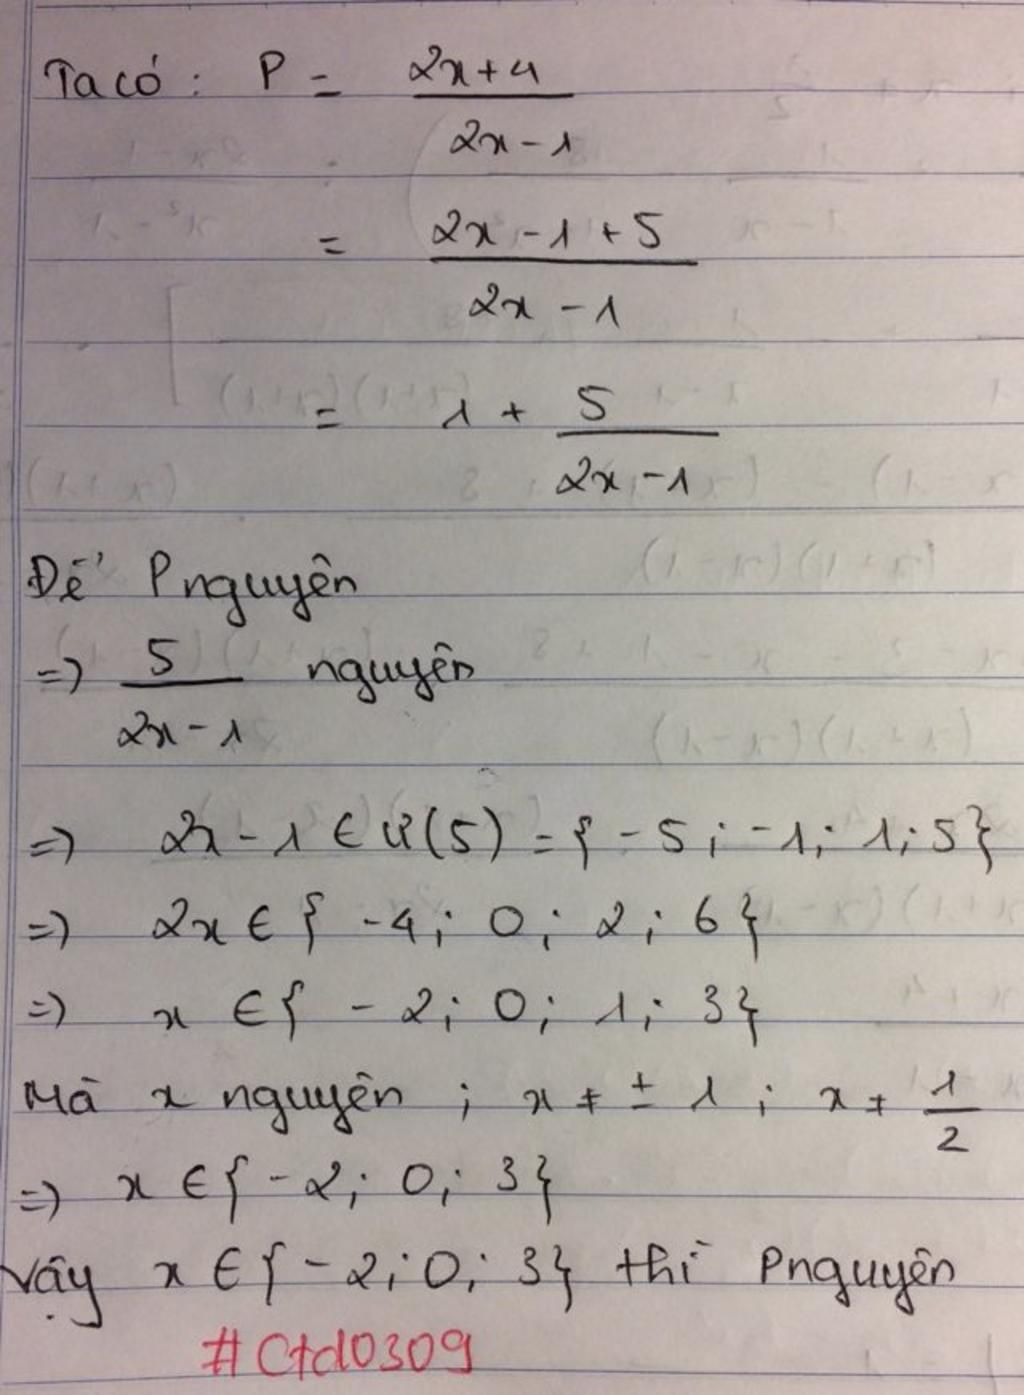 Ta có : P = 2x+4
2x-1
= 2x-1+5
2x-1
= 1 + 5
2x-1
Để P nguyên
=) 5 nguyên
2x-1
=) 2x-1 ∈ Ư(5) = { -5; -1; 1; 5}
=) 2x ∈ { -4; 0; 2; 6}
=) x ∈ { -2; 0; 1; 3}
Mà x nguyên ; x ≠ ± 1 ; x ≠ 1
2
=) x ∈ { -2; 0; 3}
Vậy x ∈ { -2; 0; 3} thì P nguyên
#Ctd0309